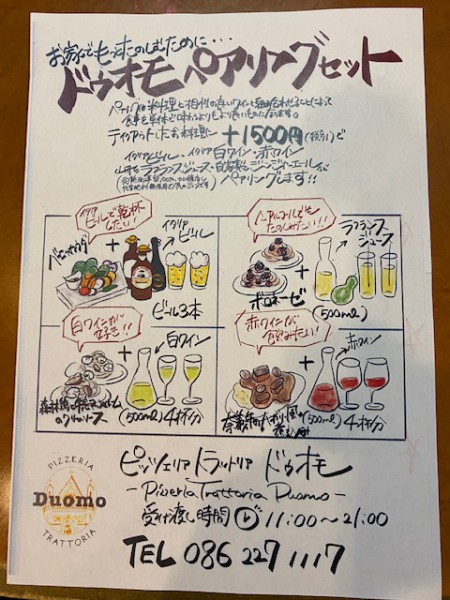 お家でもっとたのしむために・・・
ドゥオモペアリングセット
ペアリングは料理と相性の良いワインと組み合わせることによって
食事を単体で味わうよりもより良いものになります。
テイクアウトしたお料理に +1500円(税別)で
イタリアビール・イタリア白ワイン・赤ワイン
山形産ラフランスジュース・自家製ジンジャーエールが
ペアリングします!!
イタリアビールで乾杯したい!
+
イタリアビール
ビール3本
ノンアルコールでもたのしみたい!!
+
ラフランスジュース
ボロネーゼ
(500ml)
白ワインが好き!!
+
白ワイン
のクリームソース
(500ml)4杯分
赤ワインが飲みたい!
+
赤ワイン
煮込み
(500ml)4杯分
PIZZERIA
Duomo
TRATTORIA
ピッツェリア トラットリア ドゥオモ
-Pizzeria Trattoria Duomo-
受け渡し時間 11:00〜21:00
TEL 086 227 1117